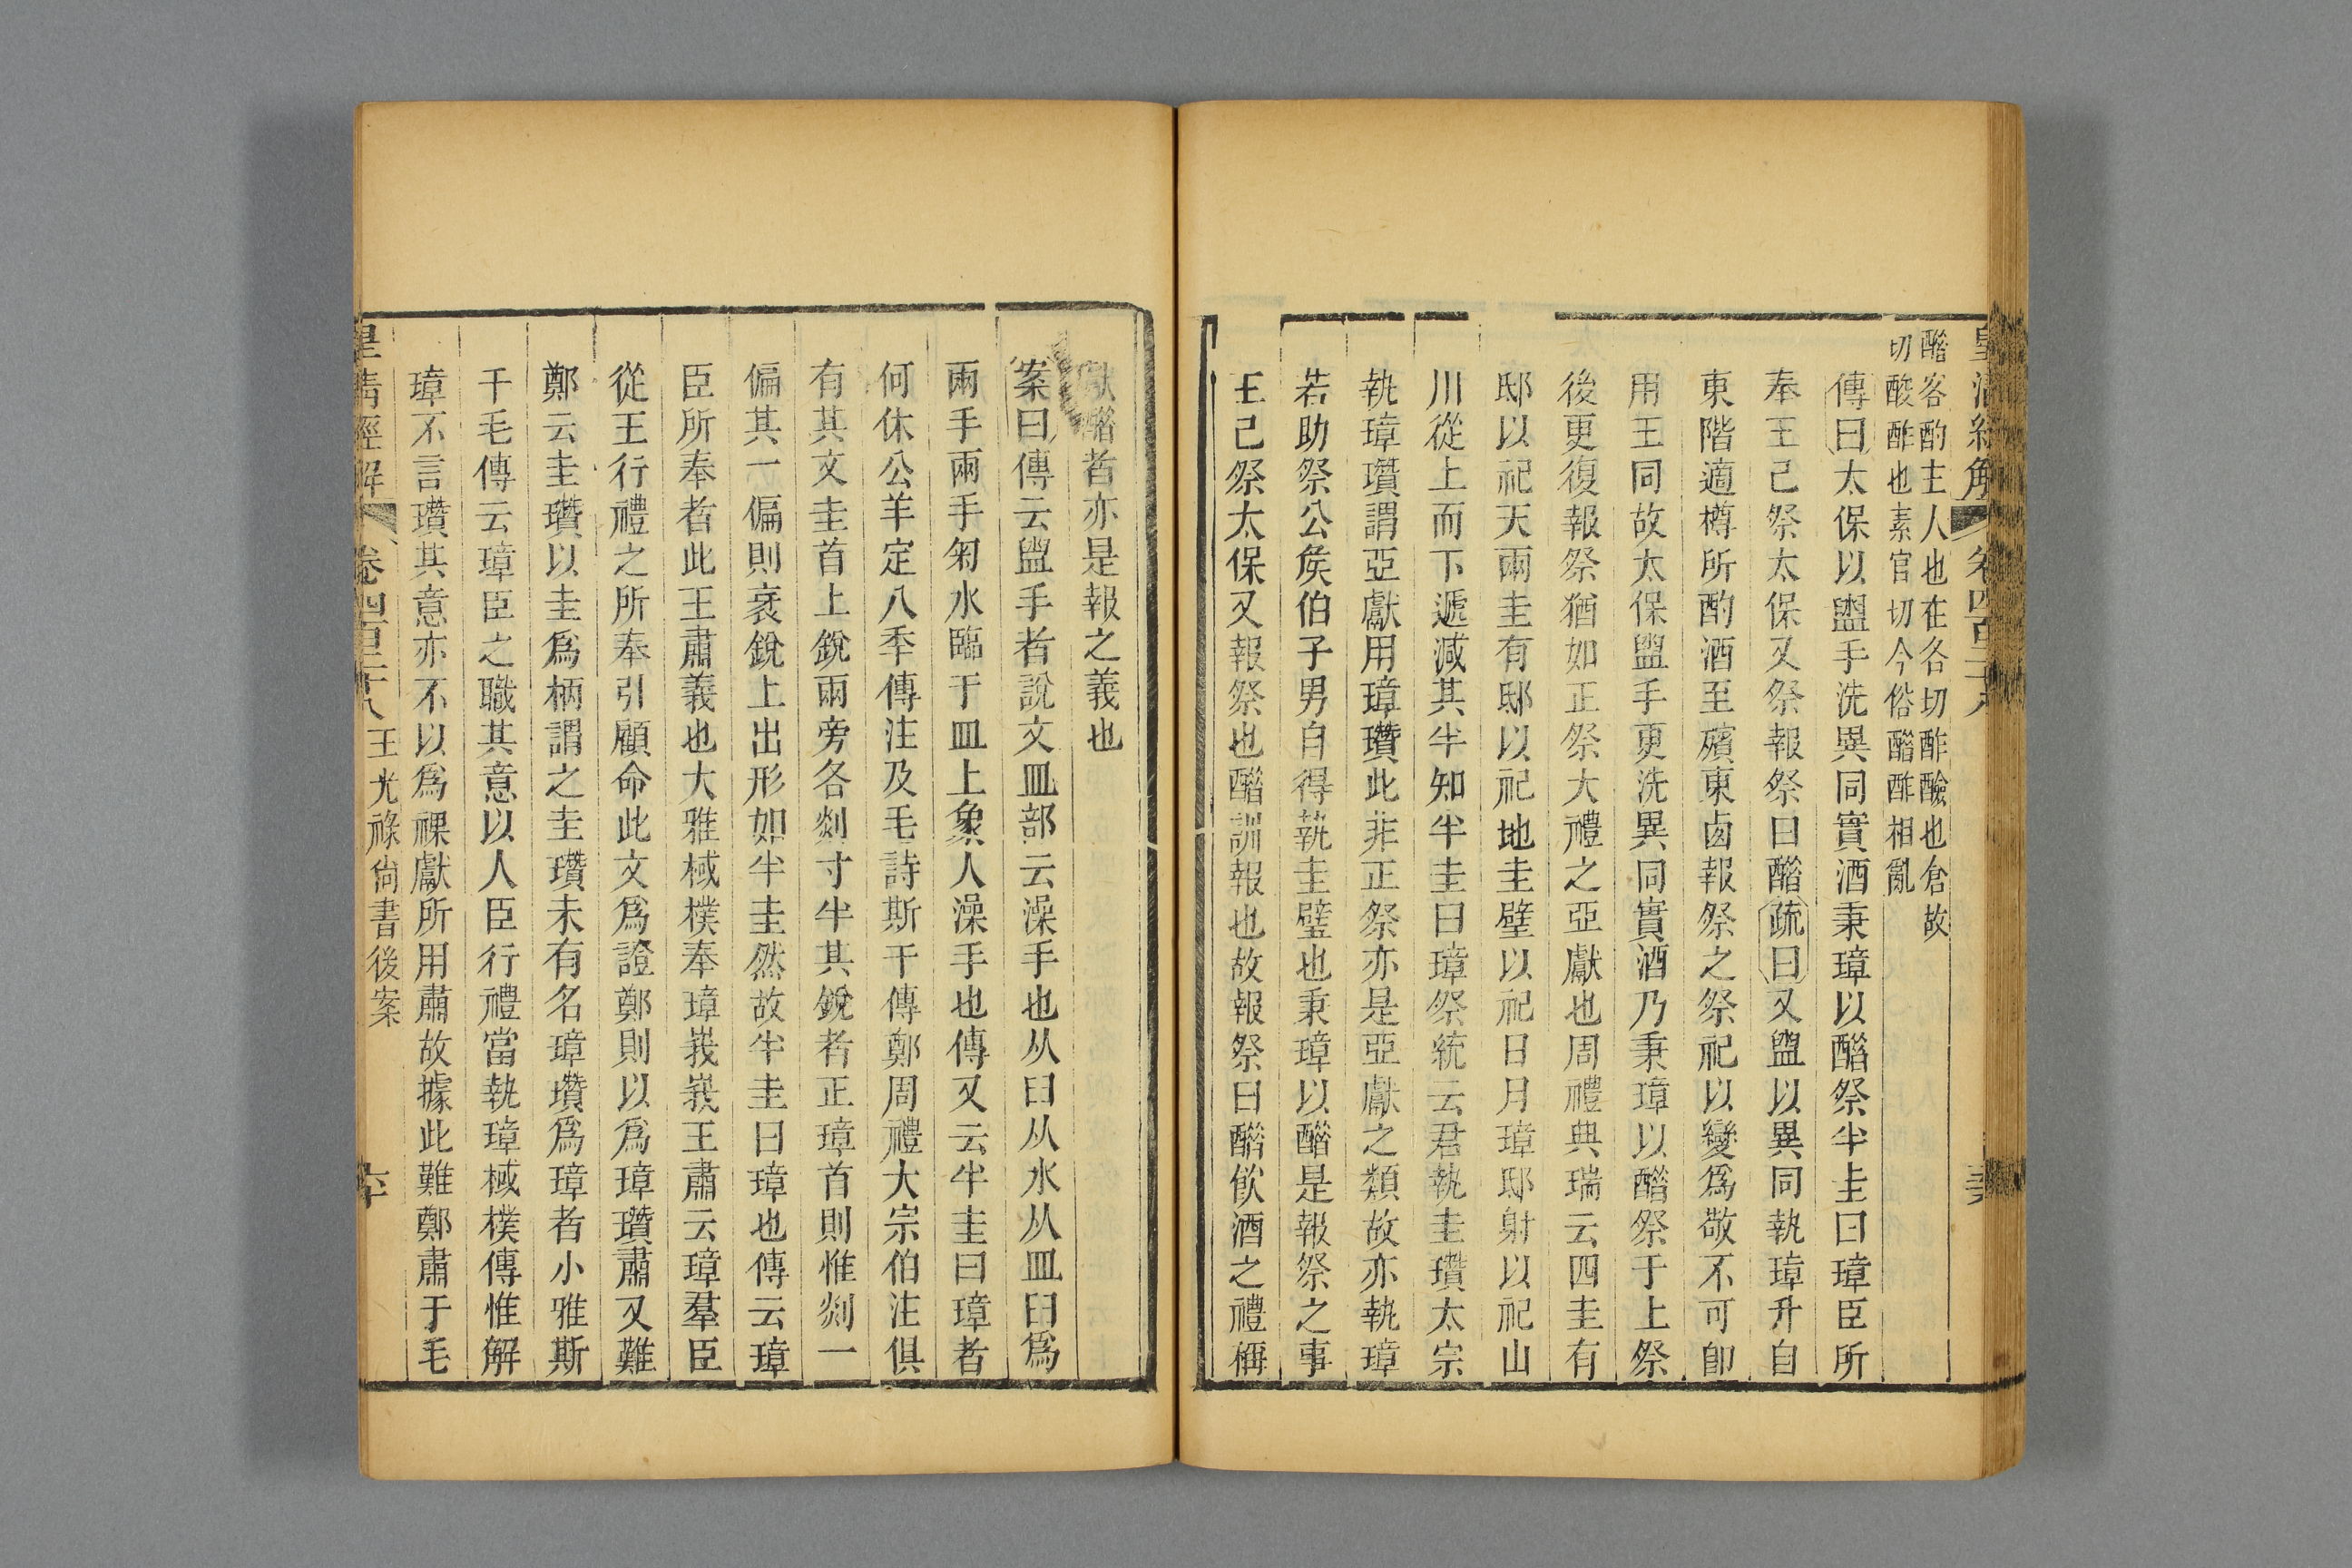 醋客酌主人也在各切酢醶也倉故
切酸酢也素官切今俗醋酢相亂
傳曰太保以盥手洗異同實酒秉璋以醋祭半圭曰璋臣所
奉王己祭太保又祭報祭曰醋疏曰又盥以異同執璋升自
東階適樽所酌酒至殯東鹵報祭之祭祀以變爲敬不可卽
用王同故太保盥手更洗異同實酒乃秉璋以醋祭于上祭
後更復報祭猶如正祭大禮之亞獻也周禮典瑞云四圭有
邸以祀天兩圭有邸以祀地圭璧以祀日月璋邸射以祀山
川從上而下遞減其半知半圭曰璋祭統云君執圭瓚太宗
執璋瓚謂亞獻用璋瓚此非正祭亦是亞獻之類故亦執璋
若助祭公矦伯子男自得執圭璧也秉璋以醋是報祭之事
王己祭太保又報祭也醋訓報也故報祭曰醋飲酒之禮稱
獻醋者亦是報之義也
案曰傳云盥手者說文皿部云澡手也从臼从水从皿臼爲
兩手兩手匊水臨于皿上象人澡手也傳又云半圭曰璋者
何休公羊定八秊傳注及毛詩斯干傳鄭周禮大宗伯注俱
有其文圭首上銳兩旁各剡寸半其銳者正璋首則惟剡一
偏其一偏則衺銳上出形如半圭然故半圭曰璋也傳云璋
臣所奉者此王肅義也大雅棫樸奉璋峩峩王肅云璋羣臣
從王行禮之所奉引顧命此文爲證鄭則以爲璋瓚肅又難
鄭云圭瓚以圭爲柄謂之圭瓚未有名璋瓚爲璋者小雅斯
干毛傳云璋臣之職其意以人臣行禮當執璋棫樸傳惟解
璋不言瓚其意亦不以爲祼獻所用肅故據此難鄭肅于毛
皇清經解 卷四百三十八 王光祿尙書後案